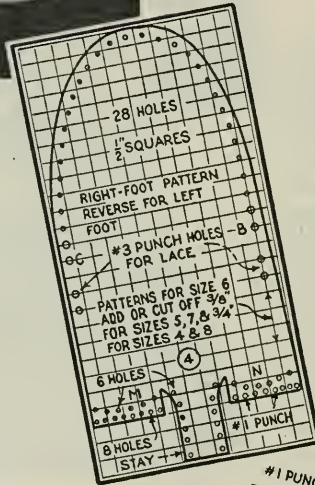 28 HOLES
1/2" SQUARES
RIGHT-FOOT PATTERN
REVERSE FOR LEFT
FOOT
C
#3 PUNCH HOLES - B
FOR LACE
PATTERNS FOR SIZE 6
ADD OR CUT OFF 3/8"
FOR SIZES 5, 7, & 3/4"
FOR SIZES 4 & 8
4
6 HOLES
M
N
8 HOLES
#1 PUNCH
STAY
#1 PUNC